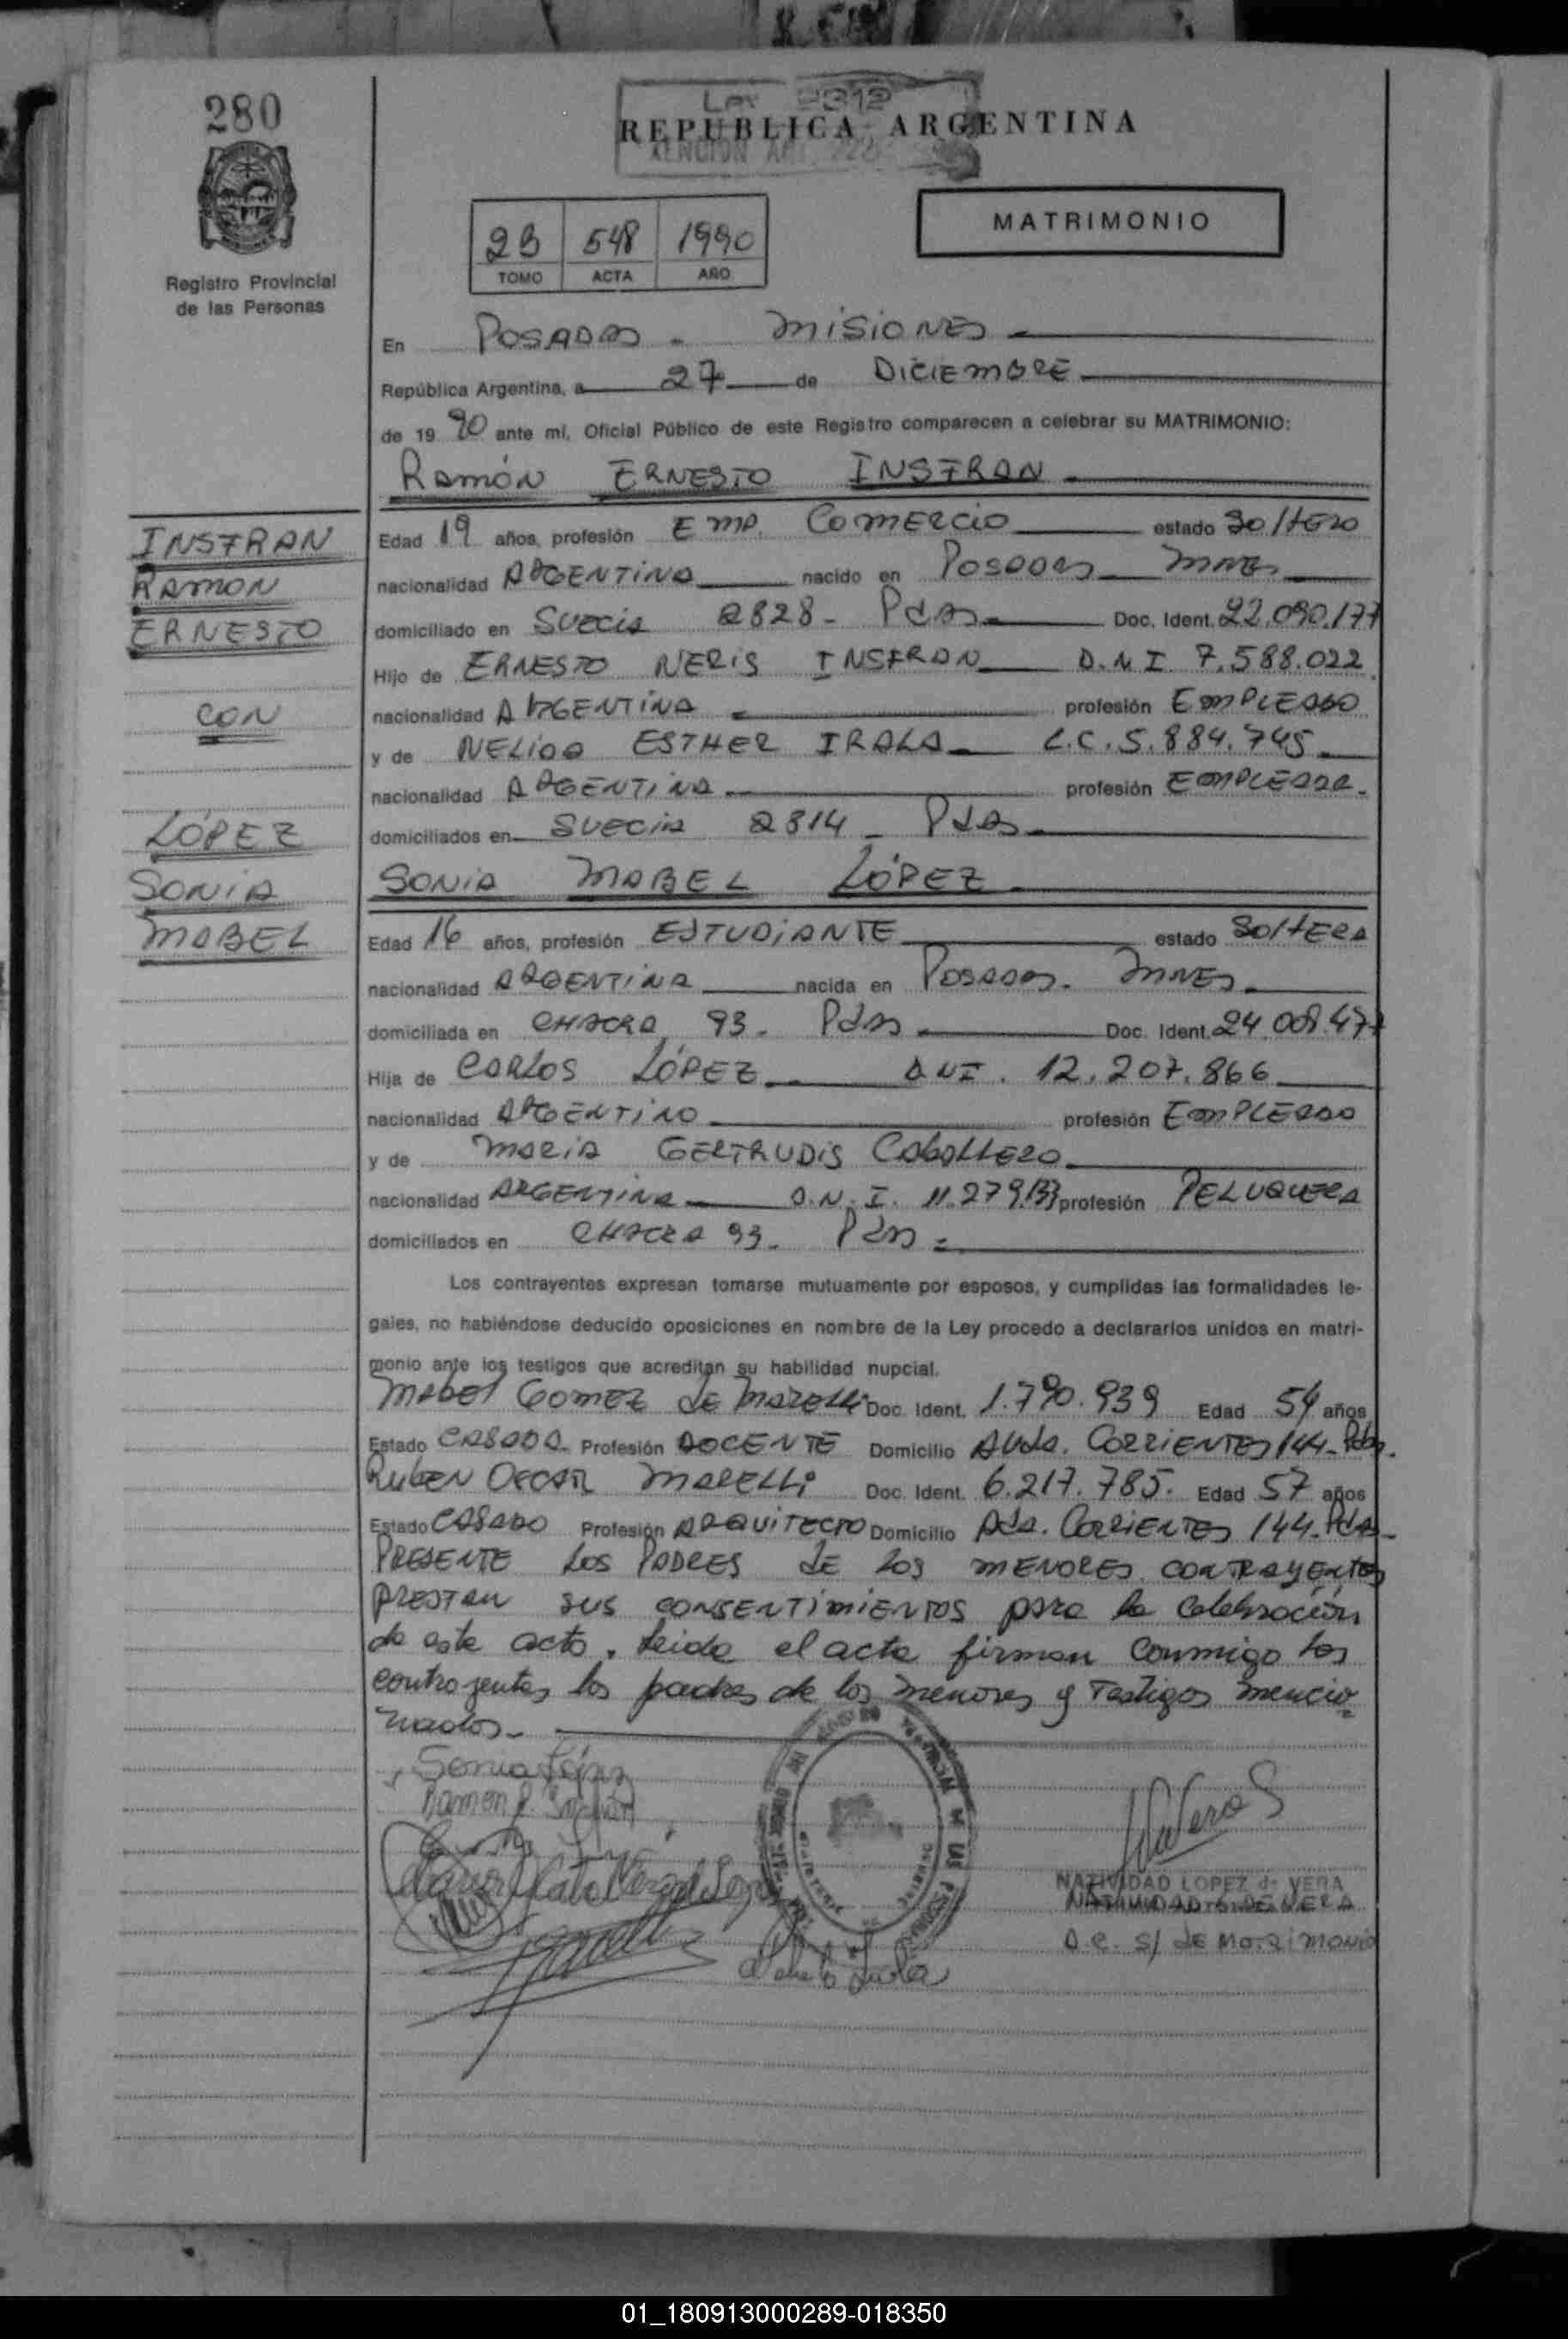 280
Ley 2312
REPUBLICA ARGENTINA
Registro Provincial
de las Personas
23 548 1990
TOMO ACTA AÑO
MATRIMONIO
En POSADAS - MISIONES
República Argentina, a 27 de DICIEMBRE
de 19 90 ante mí, Oficial Público de este Registro comparecen a celebrar su MATRIMONIO:
RAMÓN ERNESTO INSFRAN
INSFRAN
RAMON
ERNESTO
CON
LÓPEZ
SONIA
MABEL
Edad 19 años, profesión EMP. COMERCIO estado SOLTERO
nacionalidad ARGENTINA nacido en POSADAS MNES
domiciliado en SUECIA 2828 - Pdas Doc. Ident. 22.090.177
Hijo de ERNESTO NERIS INSFRAN D.N.I 7.588.022
nacionalidad ARGENTINA profesión EMPLEADO
y de NELIDA ESTHER IRALA L.C. 5.884.745
nacionalidad ARGENTINA profesión EMPLEADA
domiciliados en SUECIA 2814 - Pdas
SONIA MABEL LÓPEZ
Edad 16 años, profesión ESTUDIANTE estado SOLTERA
nacionalidad ARGENTINA nacida en POSADAS - MNES
domiciliada en CHACRA 93 - Pdas Doc. Ident. 24.009.477
Hija de CARLOS LÓPEZ DNI. 12.207.866
nacionalidad ARGENTINO profesión EMPLEADO
y de MARIA GERTRUDIS CABALLERO
nacionalidad ARGENTINA D.N.I. 11.279.133 profesión PELUQUERA
domiciliados en CHACRA 93 - Pdas
Los contrayentes expresan tomarse mutuamente por esposos, y cumplidas las formalidades le-
gales, no habiéndose deducido oposiciones en nombre de la Ley procedo a declararlos unidos en matri-
monio ante los testigos que acreditan su habilidad nupcial.
MABEL GOMEZ de MARELLI Doc. Ident. 1.790.939 Edad 54 años
Estado CASADA Profesión DOCENTE Domicilio AVda. CORRIENTES 144 - Pdas.
RUBEN OSCAR MARELLI Doc. Ident. 6.217.785. Edad 57 años
Estado CASADO Profesión ARQUITECTO Domicilio Ada. CORRIENTES 144 - Pdas
PRESENTE LOS PADRES de LOS MENORES CONTRAYENTES
PRESTAN SUS CONSENTIMIENTOS para la celebración
de este acto. leida el acta firman conmigo los
contrayentes los padres de los menores y Testigos mencio
nados -
Sonia López
NATIVIDAD LOPEZ de VERA
NATIVIDAD L. DE VERA
D.C. S/ de MATRIMONIO
01_180913000289-018350